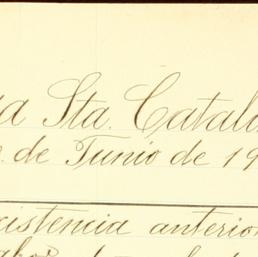 a Sta. Catali
. de Junio de 19
xistencia anterior